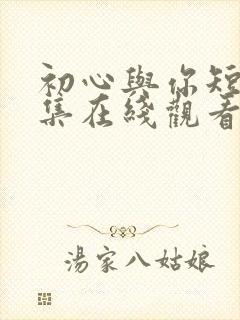 初心與你短
集在綫觀看
湯家八姑娘